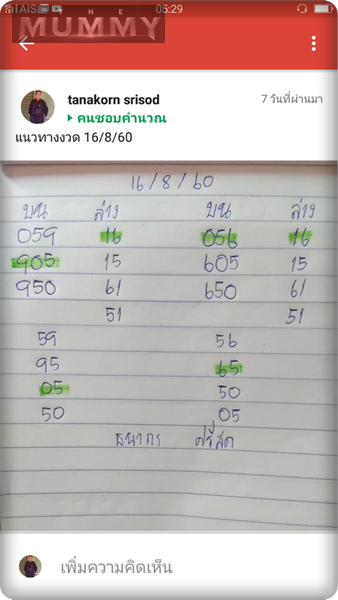 THE
MUMMY
AIS
05:29
tanakorn srisod
7 วันที่ผ่านมา
คนชอบคำนวณ
แนวทางงวด 16/8/60
16/8/60
บน ล่าง บน ล่าง
059 16 056 16
905 15 605 15
950 61 650 61
51 51
59 56
95 65
05 50
50 05
ธนากร ศรีสด
เพิ่มความคิดเห็น